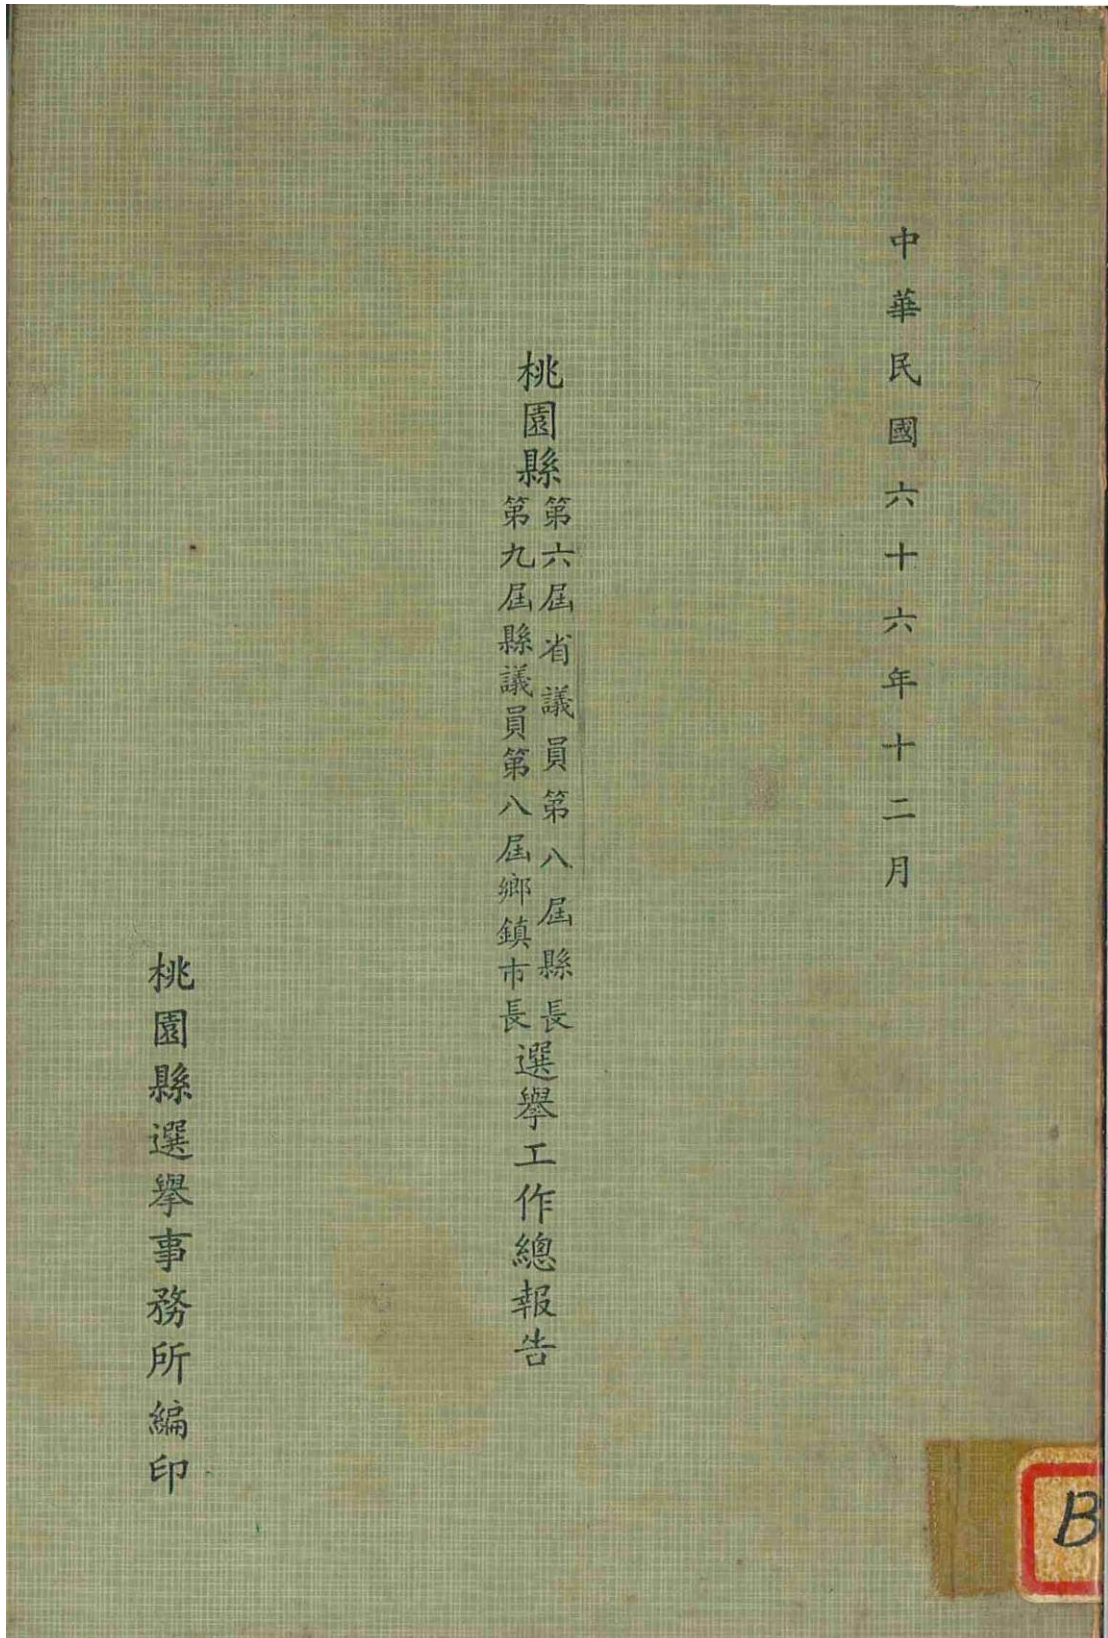 中華民國六十六年十二月
桃園縣
第六屆省議員第八屆縣長
第九屆縣議員第八屆鄉鎮市長
選舉工作總報告
桃園縣選舉事務所編印
B